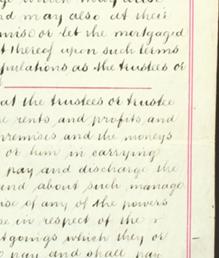 and may also at their
or let the mortgaged
thereof upon such terms
as the trustees or
at the trustees or trustee
rents and profits and
premises and the moneys
or him in carrying
pay and discharge the
and about such manage
of any of the powers
in respect of the
which they or
pay and shall pay